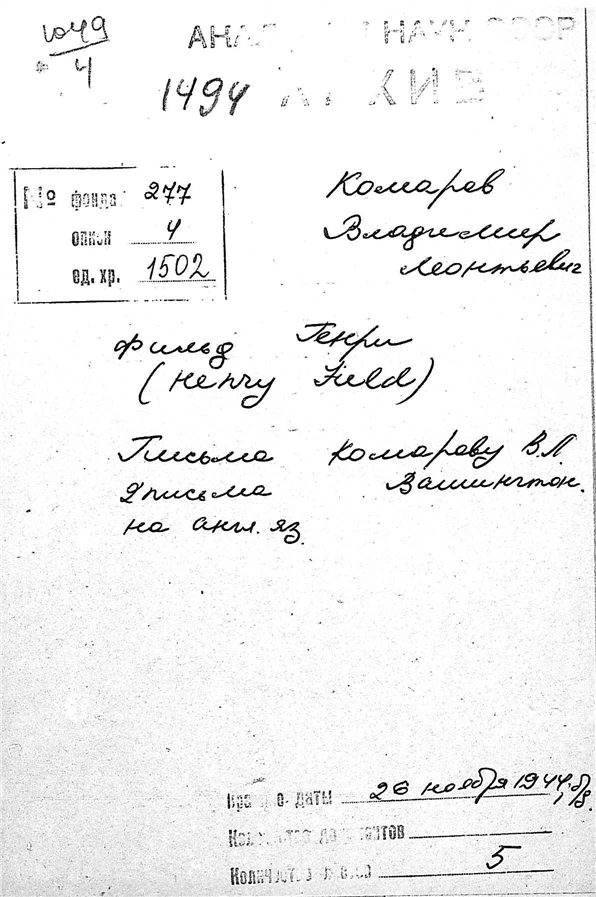 1049
4
1494
АКАДЕМИЯ НАУК СССР
АРХИВ
№ фонда 277
описи 4
ед. хр. 1502
Комаров
Владимир
Леонтьевич
Фильд Генри
(Henry Field)
Письма Комарову В.Л.
2 письма Вашингтон.
на англ. яз.
даты 26 ноября 1944, б/д.
Количество документов
Количество листов 5